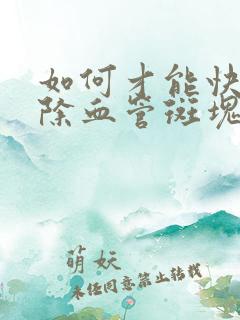 如何才能快
除血管斑块
萌妖
未经同意禁止转载